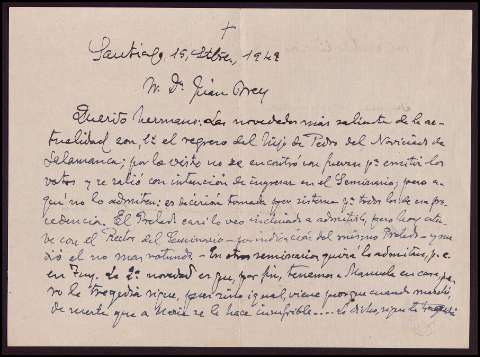 Santiago 15, Stbre, 1949
Sr. Dr. Juan
Querido hermano: Las novedades más saliente de la ac-
tualidad son, 1ª el regreso del hijo de Pedro del Noviciado de
Salamanca; por lo visto no se encontró con fuerzas pª emitir los
votos y se salió con intención de ingresar en el Seminario; pero a-
quí no lo admiten: es decisión tomada por sistema pª todos los de su pro-
cedencia. El Prelado casi lo veo inclinado a admitirlo, pero hoy
ve con el Rector del Seminario - por indicación del mismo Prelado - y me
dió el no mas rotundo. - En otros seminarios quizá lo admitan, p. e.
en Tuy. La 2ª novedad es que, por fin, tenemos a Manuela en casa, pe-
ro la tragedia sigue, pues viene igual, viene peor que cuando marchó,
de suerte que a Rocio se le hace insufrible .... Lo dicho, sigue la